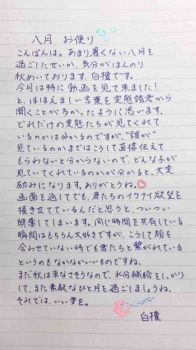 八月 お便り
こんばんは。あまり暑くない八月を
過ごしたせいか、気分がほんのり
秋めいております、白檀です。
今月は特に「動画を見て来ました!」
と、ほほえましい言葉を変態諸君から
聞くことが多かったように思います。
どれだけの変態たちが見てくれて
いるのかは分かるのですが、"誰が"
見ているのかまではこうして直接伝えて
もらわないと分からないので、どんな子が
見ていてくれているのかが分かると、大変
励みになります。ありがとうね。
画面を通してでも、君たちのイケナイ欲望を
掻き立てているんだと思うと、ついつい
興奮してしまいます。同じ時間を共有している
瞬間はもちろん大好きですが、こうして顔を
合わせていない時でも君たちと繋がれている
というのもなかなかいいものですね。
まだ秋は来なさそうなので、水分補給をしっかり
して、また素敵なひと月を過ごしましょうね。
それでは、いい夢を。
白檀